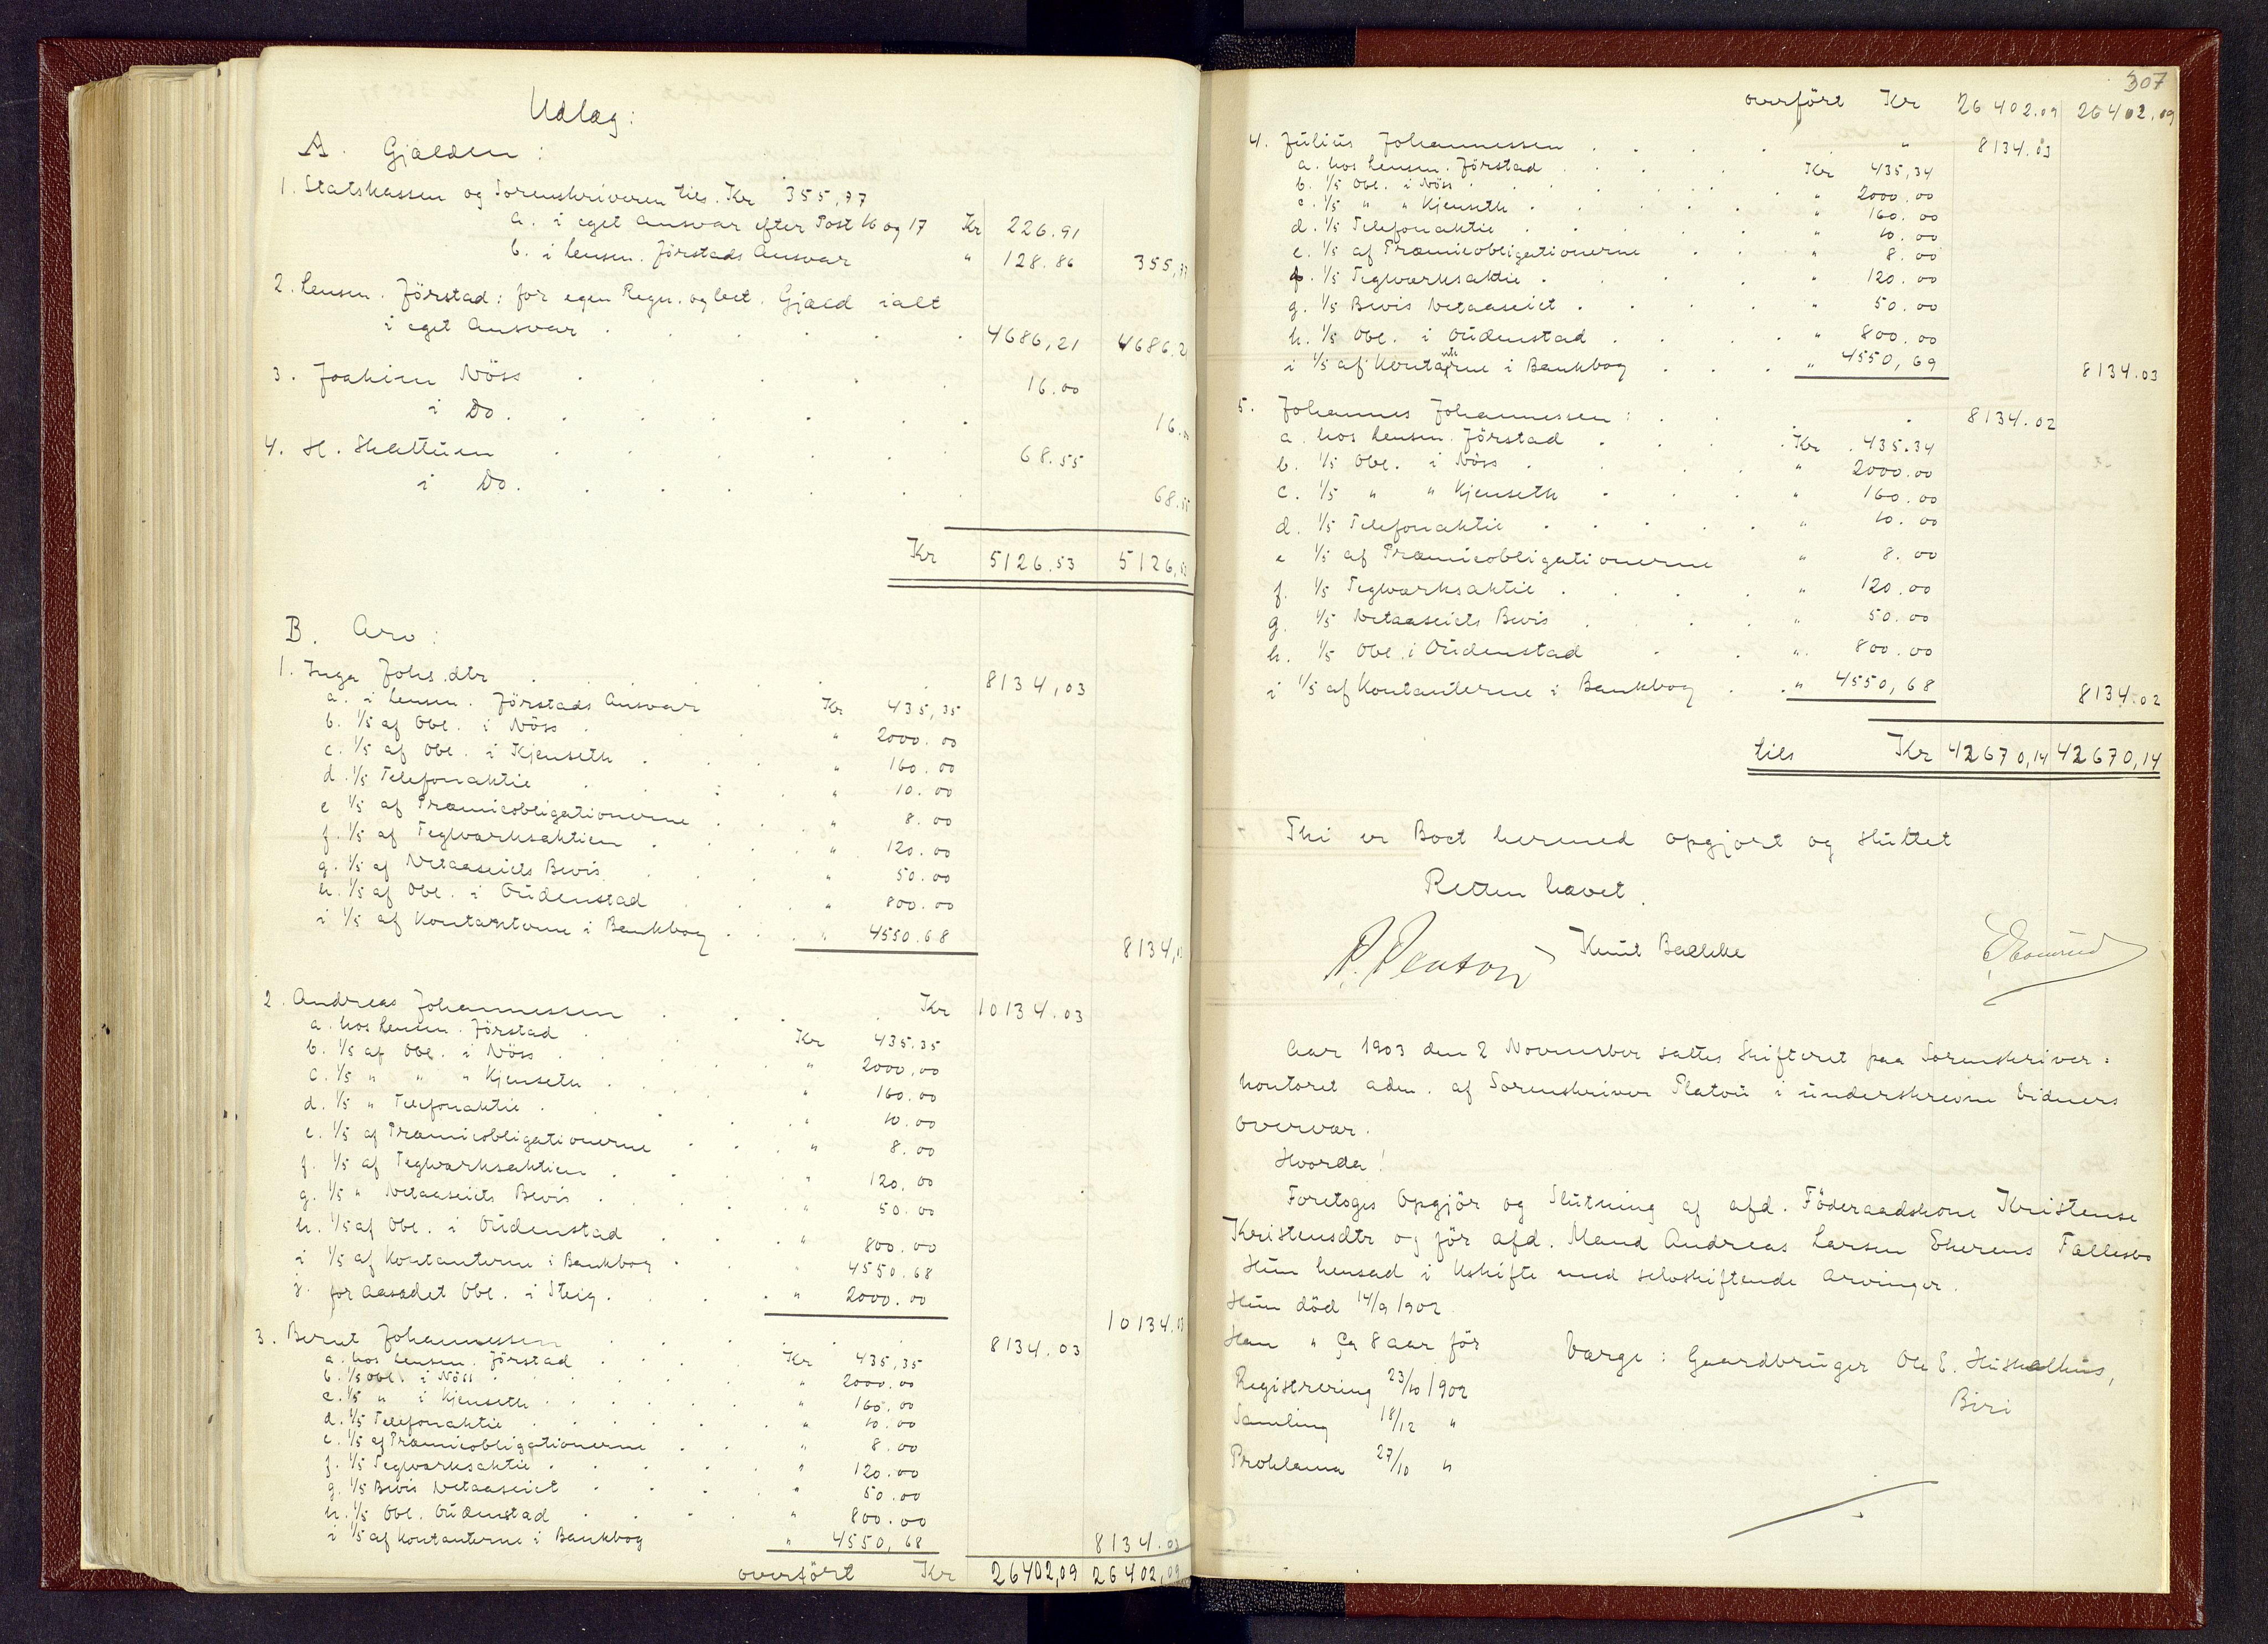 Udlæg:
A. Gjælden:
1. Statskassen og Sorenskriveren tils. Kr 355,77
a. i eget Ansvar efter Post 16 og 17 Kr 226.91
b. i Lensm. Jörstads Ansvar " 128.86 355,77
2. Lensm. Jörstad: for egen Regn. og bet. Gjæld ialt
i eget Ansvar . . . . . 4686,21 4686.21
3. Joakim Nöss . . . . 16.00
i Do. . . . . . . 16.00
4. H. Skattum . . . . . 68.55
i Do. . . . . . . 68.55
Kr 5126.53 5126,53
B. Arv:
1. Inga Johs.dtr . . . . . . 8134,03
a. i Lensm. Jörstads Ansvar Kr 435,35
b. 1/5 af Obl. i Nöss . . . " 2000.00
c. 1/5 af Obl. i Kjenseth . . . " 160.00
d. 1/5 Telefonaktie . . . " 10.00
e 1/5 af Præmieobligationerne . . " 8.00
f. 1/5 af Teglværksaktien . . . " 120.00
g. 1/5 af Bevis . . " 50.00
h. 1/5 af Obl. i Oudenstad . . . " 800.00
i 1/5 af Kontanterne i Bankbog . . . " 4550.68 8134,03
2. Andreas Johannessen . . . . Kr 10134.03
a. hos Lensm. Jörstad . . . Kr 435.35
b. 1/5 af Obl. i Nöss . . . . " 2000,00
c. 1/5 " " " Kjenseth . . . . " 160.00
d. 1/5 " Telefonaktie . . . . " 10.00
e. 1/5 af Præmieobligationerne . . . " 8.00
f. 1/5 af Teglværksaktien . . . " 120.00
g. 1/5 " Bevis . . . " 50.00
h. 1/5 af Obl. i Oudenstad . . . " 800.00
i 1/5 af Kontanterne i Bankbog . . " 4550.68
j. for Aasædet Obl. i Steig . . . " 2000.00 10134.03
3. Bernt Johannessen . . . . . 8134.03
a. hos Lensm. Jörstad . . . . Kr 435,35
b. 1/5 Obl. i Nöss . . . . . " 2000.00
c. 1/5 " i Kjenseth . . . . . " 160.00
d. 1/5 Telefonaktie . . . . . " 10.00
e. 1/5 af Præmieobligationerne . . " 8.00
f. 1/5 Teglværksaktie . . . . " 120.00
g. 1/5 Bevis . . . . " 50.00
h. 1/5 Obl. Oudenstad . . . . " 800.00
i 1/5 af Kontanterne i Bankbog " 4550,68 8134.03
overfört Kr 26402,09 26402,09
307
overfört Kr 26402.09 26402.09
4. Julius Johannessen . . . . . " 8134.03
a. hos Lensm. Jörstad . . . . Kr 435,34
b. 1/5 Obl. i Nöss . . . . . . " 2000.00
c. 1/5 " " Kjenseth . . . . . " 160.00
d. 1/5 Telefonaktie . . . . . " 10.00
e. 1/5 af Præmieobligationerne . . . " 8.00
f. 1/5 Teglværksaktie . . . . " 120.00
g. 1/5 Bevis . . . . " 50.00
h. 1/5 Obl. i Oudenstad . . . . " 800.00
i 1/5 af Kontanterne i Bankbog . . . " 4550,69 8134.03
5. Johannes Johannessen: . . . 8134.02
a. hos Lensm. Jörstad . . . . Kr 435.34
b. 1/5 Obl. i Nöss . . . . " 2000.00
c. 1/5 " " Kjenseth . . . " 160.00
d. 1/5 Telefonaktie . . . . . " 10.00
e 1/5 af Præmieobligationerne " 8.00
f. 1/5 Teglværksaktie . . . . " 120.00
g. 1/5 Bevis . . . . " 50.00
h. 1/5 Obl. i Oudenstad . . " 800.00
i 1/5 af Kontanterne i Bankbog . . " 4550,68 8134.02
tils Kr 42670,14 42670,14
Thi er Boet hermed opgjort og sluttet
Retten hævet.
Knut Bakke
Aar 1903 den 2 November sattes Skifteret paa Sorenskriver=
kontoret adm. af Sorenskriver Platou i underskrevne Vidners
Overvær.
Hvorda!
Foretoges Opgjör og Slutning af afd. Föderaadskone Kristense
Kristensdtr og för afd. Mand Andreas Larsen Ekerens Fællesbo
Hun hensad i Uskifte med selvskiftende Arvinger.
Hun död 14/9 1902
Han " Ca 8 aar för
Værge: Gaardbruger Ole E. Huskelhus,
Biri
Registrering 23/10 1902
Samling 18/12 "
Proklama 27/10 "